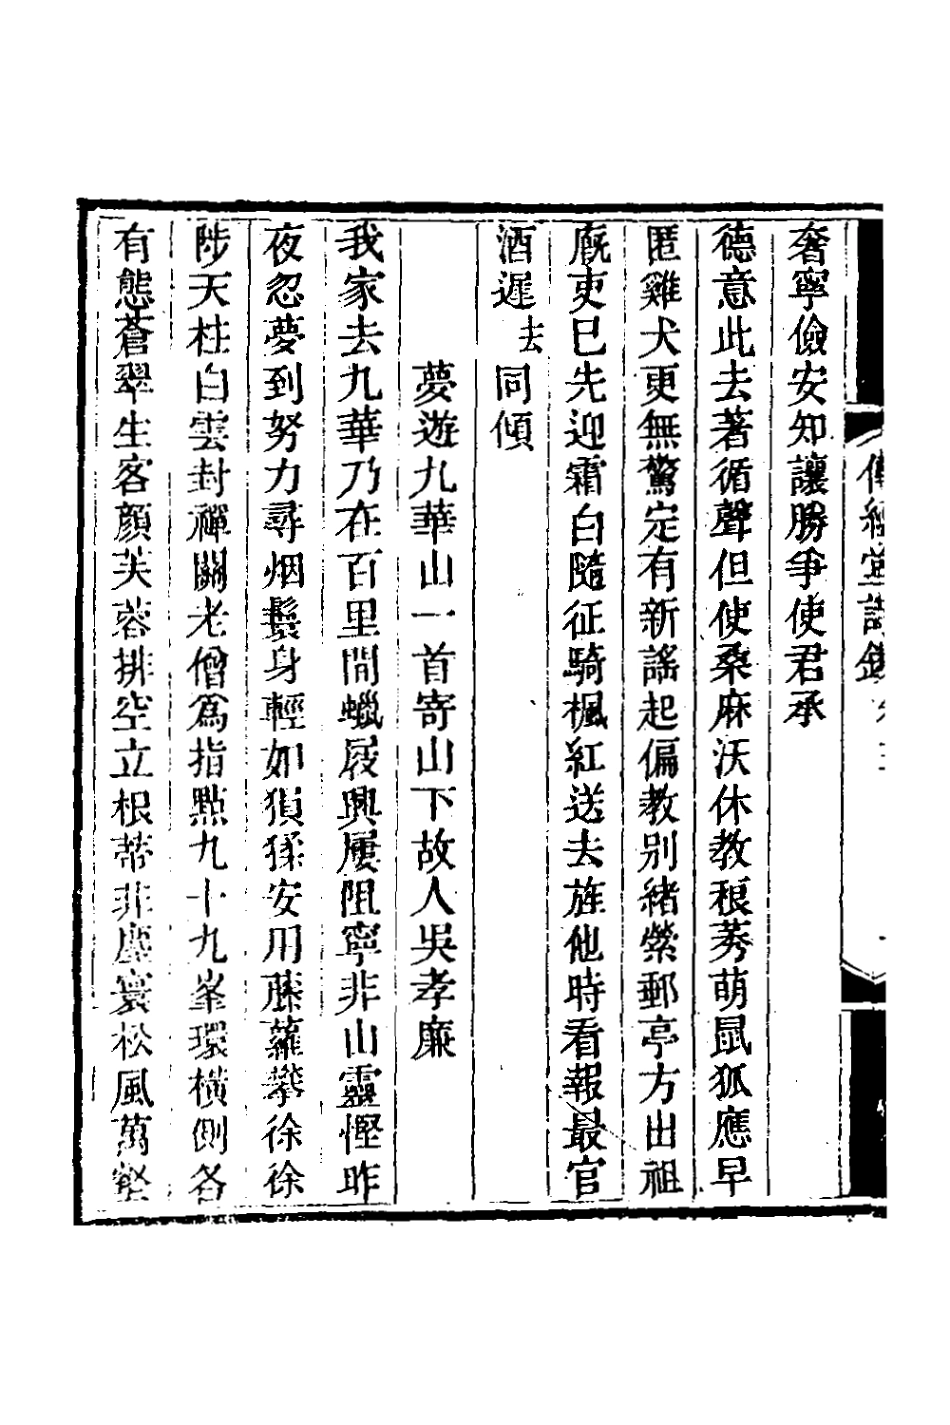 傳經堂詩鈔
奢寧儉安知讓勝爭使君承
德意此去著循聲但使桑麻沃休教稂莠萌鼠狐應早
匿雞犬更無驚定有新謠起偏教別緒縈郵亭方出祖
廐吏巳先迎霜白隨征騎楓紅送去旌他時看報最官
酒遲去同傾
夢遊九華山一首寄山下故人吳孝廉
我家去九華乃在百里間蠟屐興屢阻寧非山靈慳昨
夜忽夢到努力尋烟鬟身輕如猨猱安用藤蘿攀徐徐
陟天柱白雲封禪關老僧爲指點九十九峯環橫側各
有態蒼翠生客顏芙蓉排空立根蒂非塵寰松風萬壑